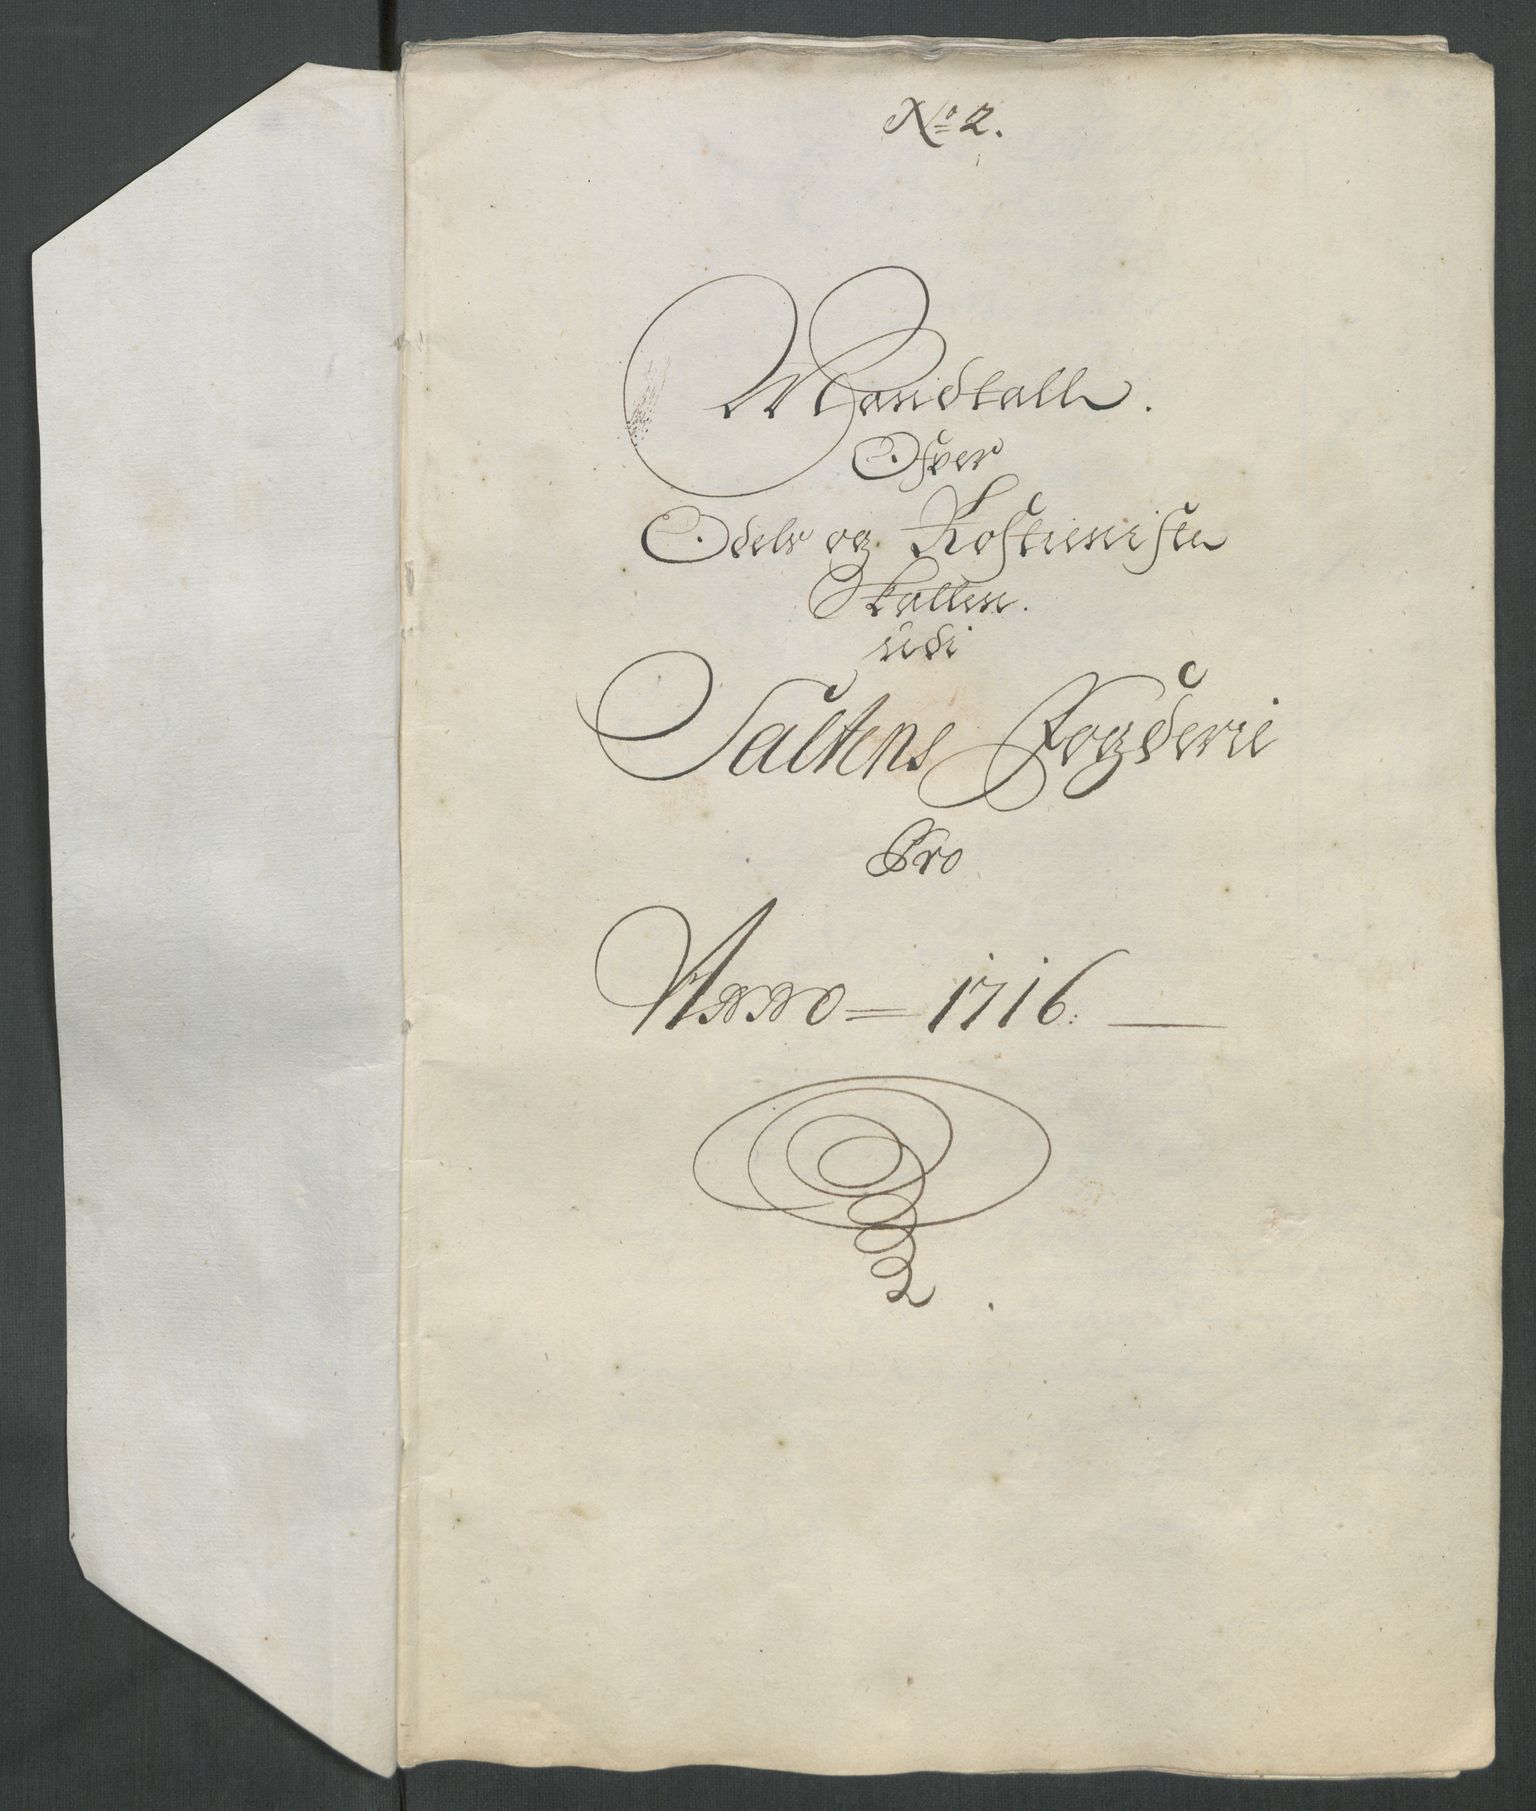 No 2.
Mandtall.
Ofver
Odels og Rostieniste
Skatten.
udi
Saltens Fogderie
Pro
Anno = 1716.